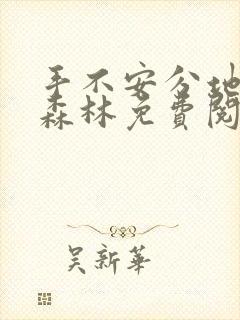 手不安分地
森林免费阅
吴新华